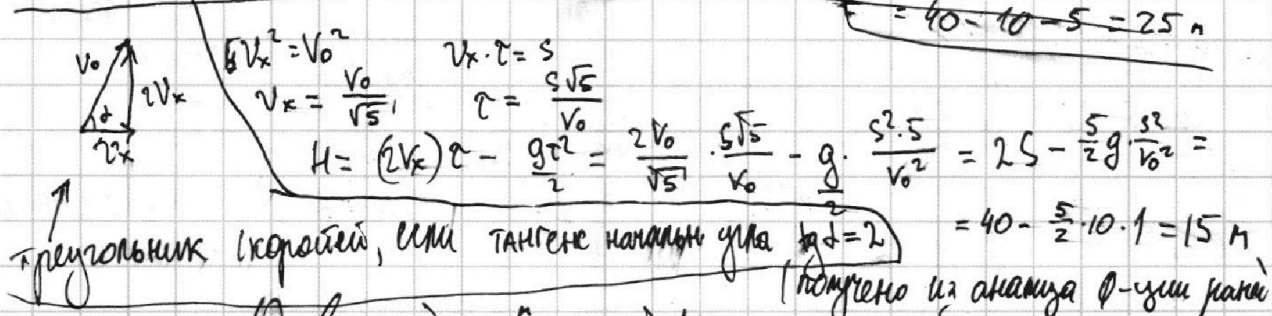 = 40 - 10 - 5 = 25 м
V₀ 2Vx α Vx
5Vx² = V₀² Vx · τ = S
Vx = V₀/√5 τ = S√5/V₀
H = (2Vx)τ - gτ²/2 = 2V₀/√5 · S√5/V₀ - g/2 · S²·5/V₀² = 2S - 5/2 g · S²/V₀² =
= 40 - 5/2 · 10 · 1 = 15 м
треугольник скоростей, если тангенс начальн угла tg α = 2
(получено из анализа ф-ции